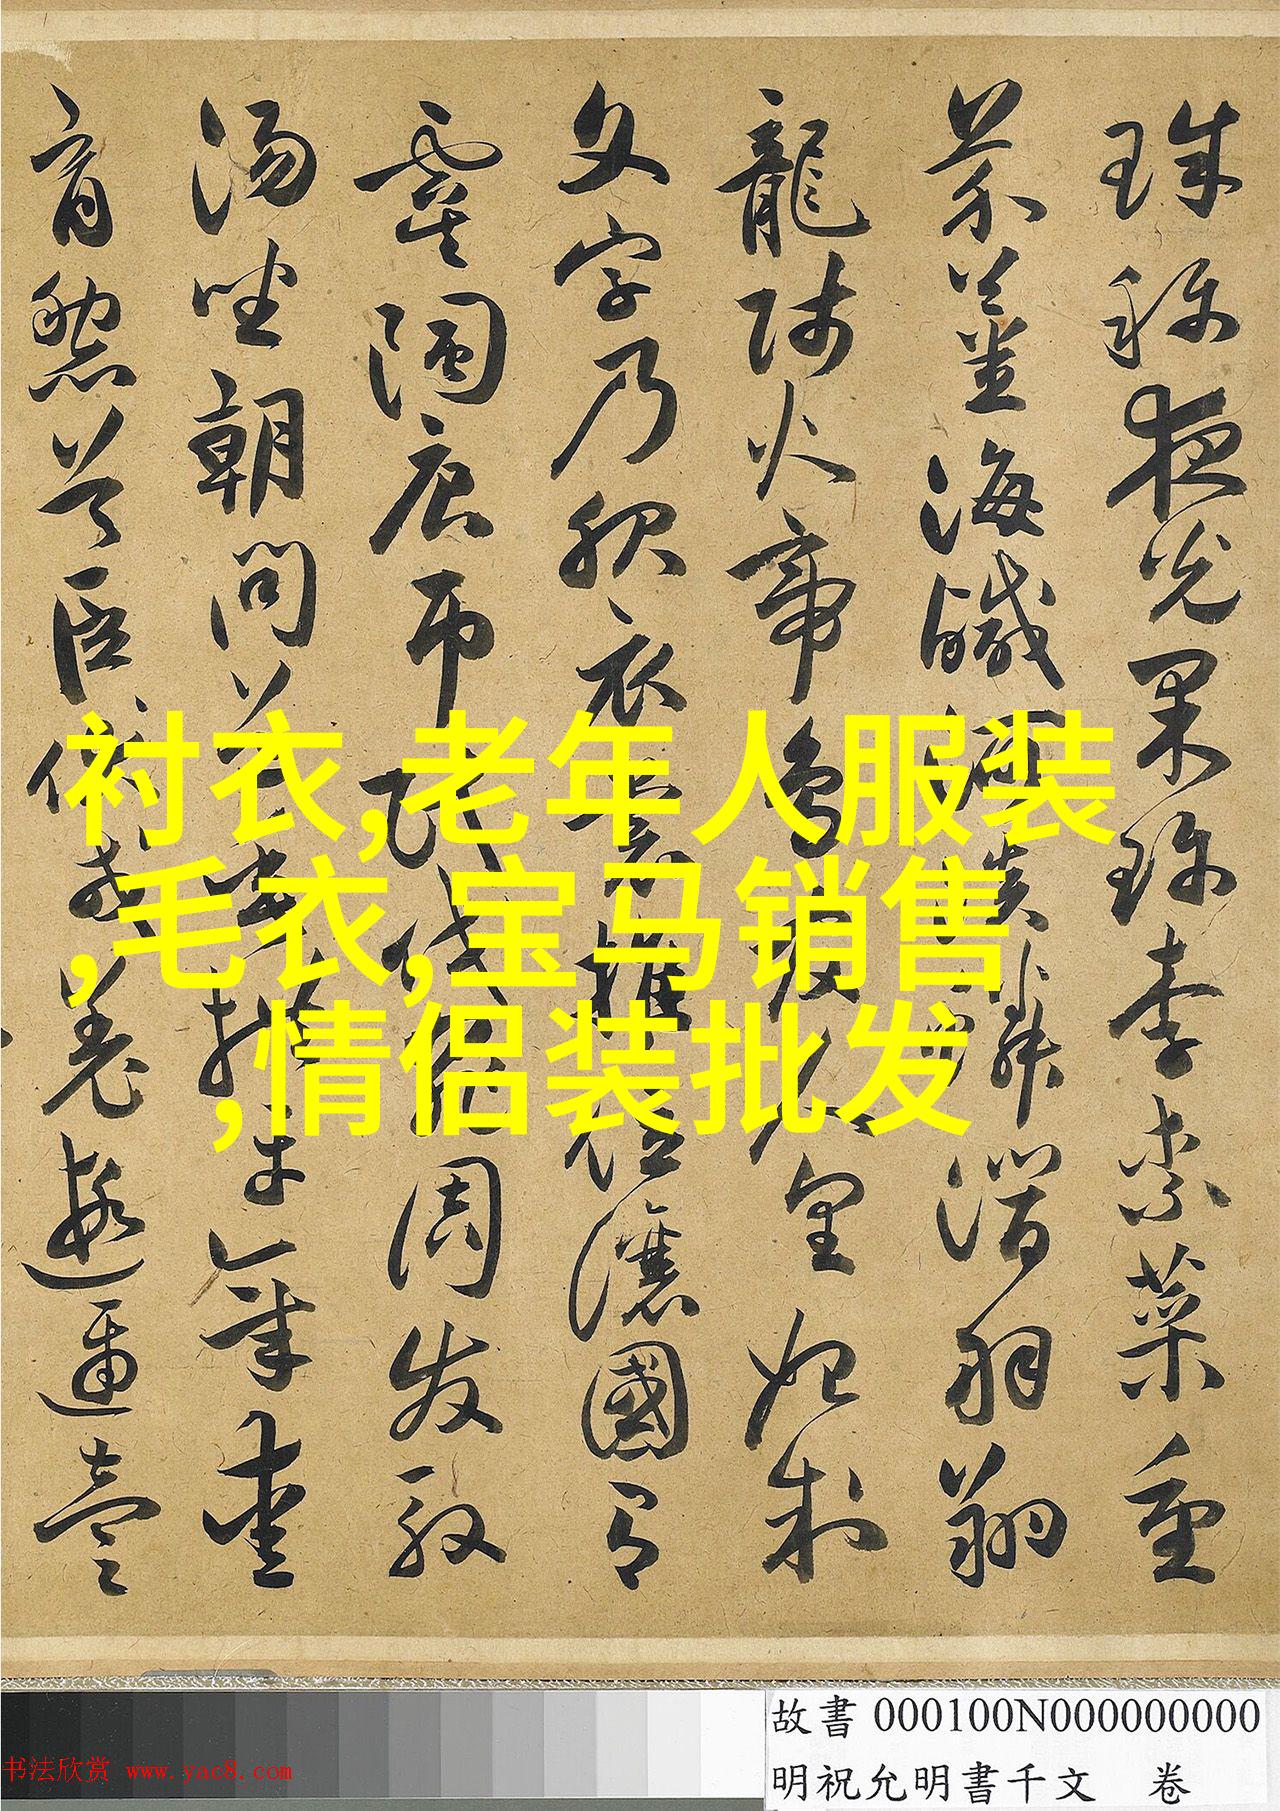 珠称夜光果珍李柰菜重
芥薑海鹹河淡鱗潛羽翔
龍師火帝鳥官人皇始制
文字乃服衣裳推位讓國有
虞陶唐弔民伐罪周發殷
湯坐朝問道垂拱平章愛
育黎首臣伏戎羌遐邇壹
衬衣,老年人服装
,毛衣,宝马销售
,情侣装批发
故書 000100N000000000
明祝允明書千文 卷
书法欣赏 www.yac8.com